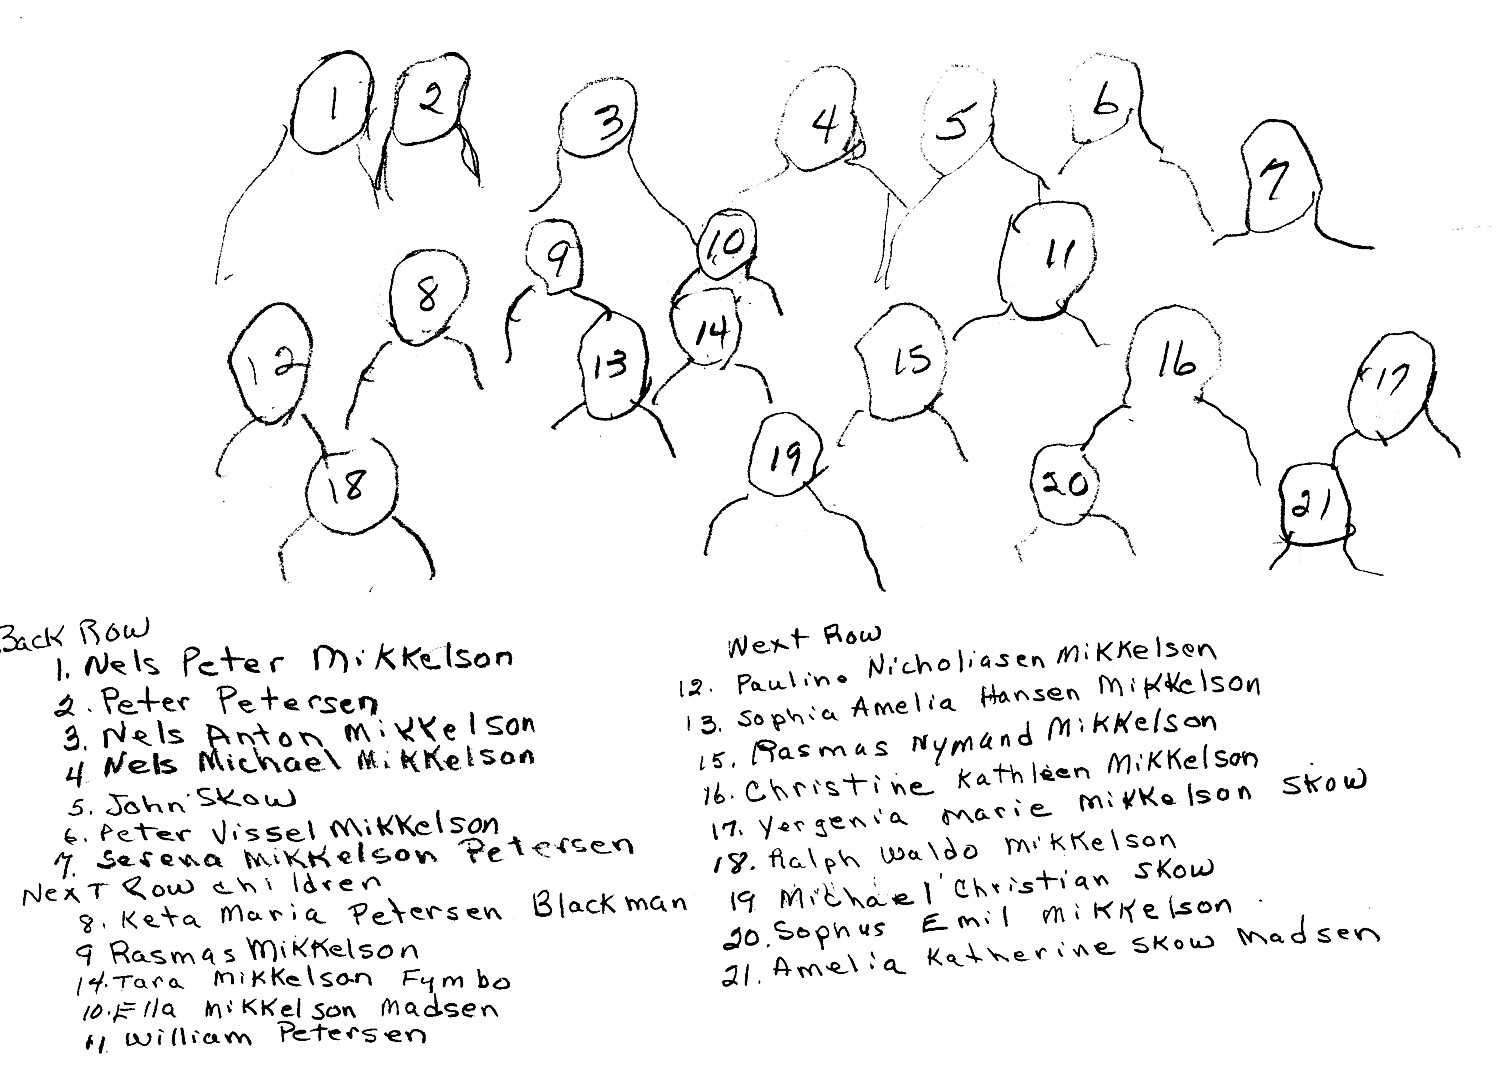 1 2 3 4 5 6
7
8 9 10 11
12 13 14 15 16 17
18 19 20 21
Back Row
1. Nels Peter Mikkelson
2. Peter Petersen
3. Nels Anton Mikkelson
4 Nels Michael Mikkelson
5. John Skow
6. Peter Vissel Mikkelson
7. Serena Mikkelson Petersen
Next Row children
8. Keta Maria Petersen Blackman
9 Rasmas Mikkelson
14. Tara Mikkelson Fymbo
10. Ella Mikkelson Madsen
11. William Petersen
Next Row
12. Pauline Nicholiasen Mikkelsen
13. Sophia Amelia Hansen Mikkelson
15. Rasmas Nymand Mikkelson
16. Christine Kathleen Mikkelson
17. Yergenia Marie Mikkelson Skow
18. Ralph Waldo Mikkelson
19 Michael Christian Skow
20. Sophus Emil Mikkelson
21. Amelia Katherine Skow Madsen